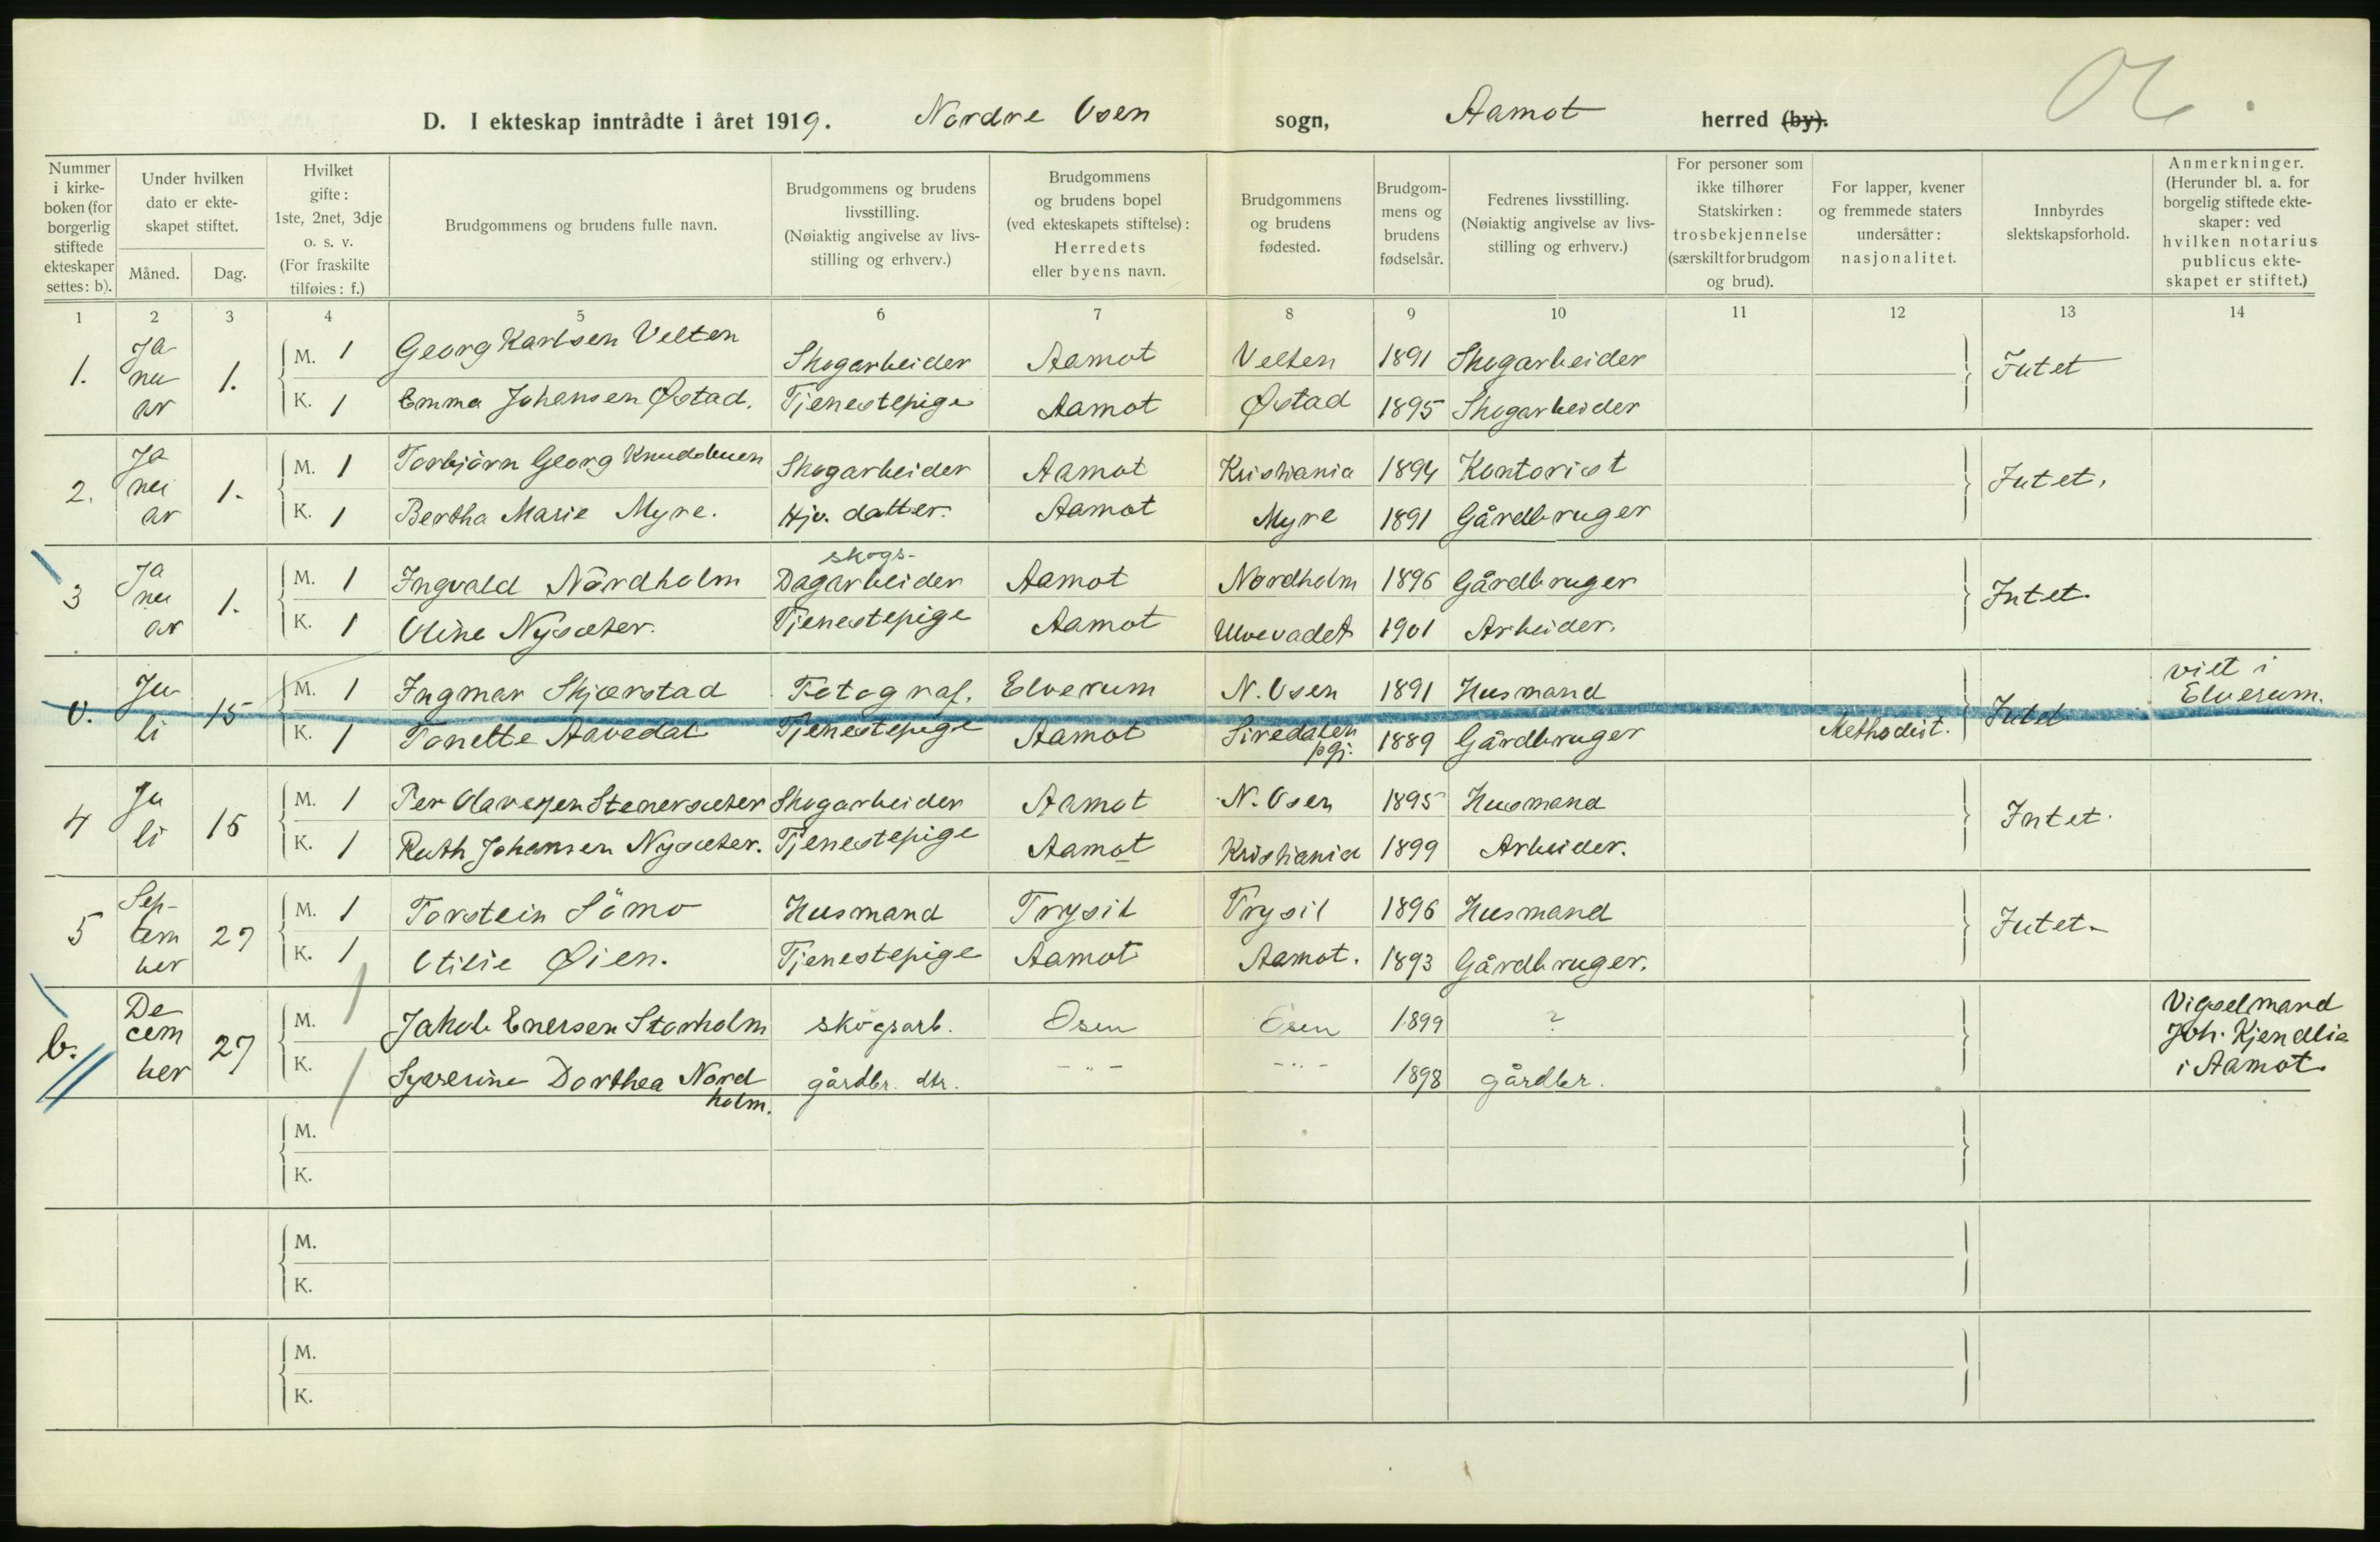 D. I ekteskap inntrådte i året 1919. Nordre Osen sogn, Aamot herred (by).
Nummer i kirke-boken (for borgerlig stiftede ekteskaper settes: b).
Under hvilken dato er ekte-skapet stiftet.
Måned. Dag.
Hvilket gifte: 1ste, 2net, 3dje o. s. v. (For fraskilte tilføies: f.)
Brudgommens og brudens fulle navn.
Brudgommens og brudens livsstilling. (Nøiaktig angivelse av livs-stilling og erhverv.)
Brudgommens og brudens bopel (ved ekteskapets stiftelse): Herredets eller byens navn.
Brudgommens og brudens fødested.
Brudgom-mens og brudens fødselsår.
Fedrenes livsstilling. (Nøiaktig angivelse av livs-stilling og erhverv.)
For personer som ikke tilhører Statskirken: trosbekjennelse (særskilt for brudgom og brud).
For lapper, kvener og fremmede staters undersåtter: nasjonalitet.
Innbyrdes slektskapsforhold.
Anmerkninger. (Herunder bl. a. for borgelig stiftede ekte-skaper: ved hvilken notarius publicus ekte-skapet er stiftet.)
1 2 3 4 5 6 7 8 9 10 11 12 13 14
1. Januar 1. M. 1 Georg Karlsen Velten Skogarbeider Aamot Velten 1891 Skogarbeider Intet
K. 1 Emma Johansen Østad. Tjenestepige Aamot Østad 1895 Skogarbeider
2. Januar 1. M. 1 Torbjörn Georg Knudsbuen Skogarbeider Aamot Kristiania 1894 Kontorist Intet.
K. 1 Bertha Marie Myre. Hjv. datter. Aamot Myre 1891 Gårdbruger
3 Januar 1. M. 1 Ingvald Nordholm skogs-Dagarbeider Aamot Nordholm 1896 Gårdbruger Intet.
K. 1 Oline Nysæter. Tjenestepige Aamot Ulvevadet 1901 Arbeider.
0. Juli 15 M. 1 Ingmar Skjærstad Fotograf. Elverum N. Osen 1891 Husmand Intet viet i Elverum.
K. 1 Tonette Aavedal Tjenestepige Aamot Siredalen pgj. 1889 Gårdbruger Methodist.
4 Juli 15 M. 1 Per Olavesen Stenersæter Skogarbeider Aamot N. Osen 1895 Husmand Intet.
K. 1 Ruth Johansen Nysæter. Tjenestepige Aamot Kristiania 1899 Arbeider.
5 September 27 M. 1 Torstein Sömo Husmand Trysil Trysil 1896 Husmand Intet.
K. 1 Otilie Øien. Tjenestepige Aamot Aamot. 1893 Gårdbruger.
b. December 27 M. 1 Jakob Enersen Storholm skogsarb. Osen Osen 1899 ? Vigselmand Joh. Kjendlie i Aamot.
K. 1 Syverine Dorthea Nordholm. gårdbr. dtr. - „ - - „ - 1898 gårdbr.
M.
K.
M.
K.
M.
K.